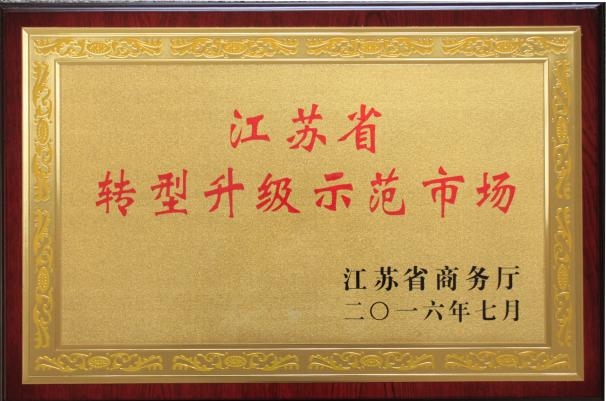 江苏省
转型升级示范市场
江苏省商务厅
二〇一六年七月